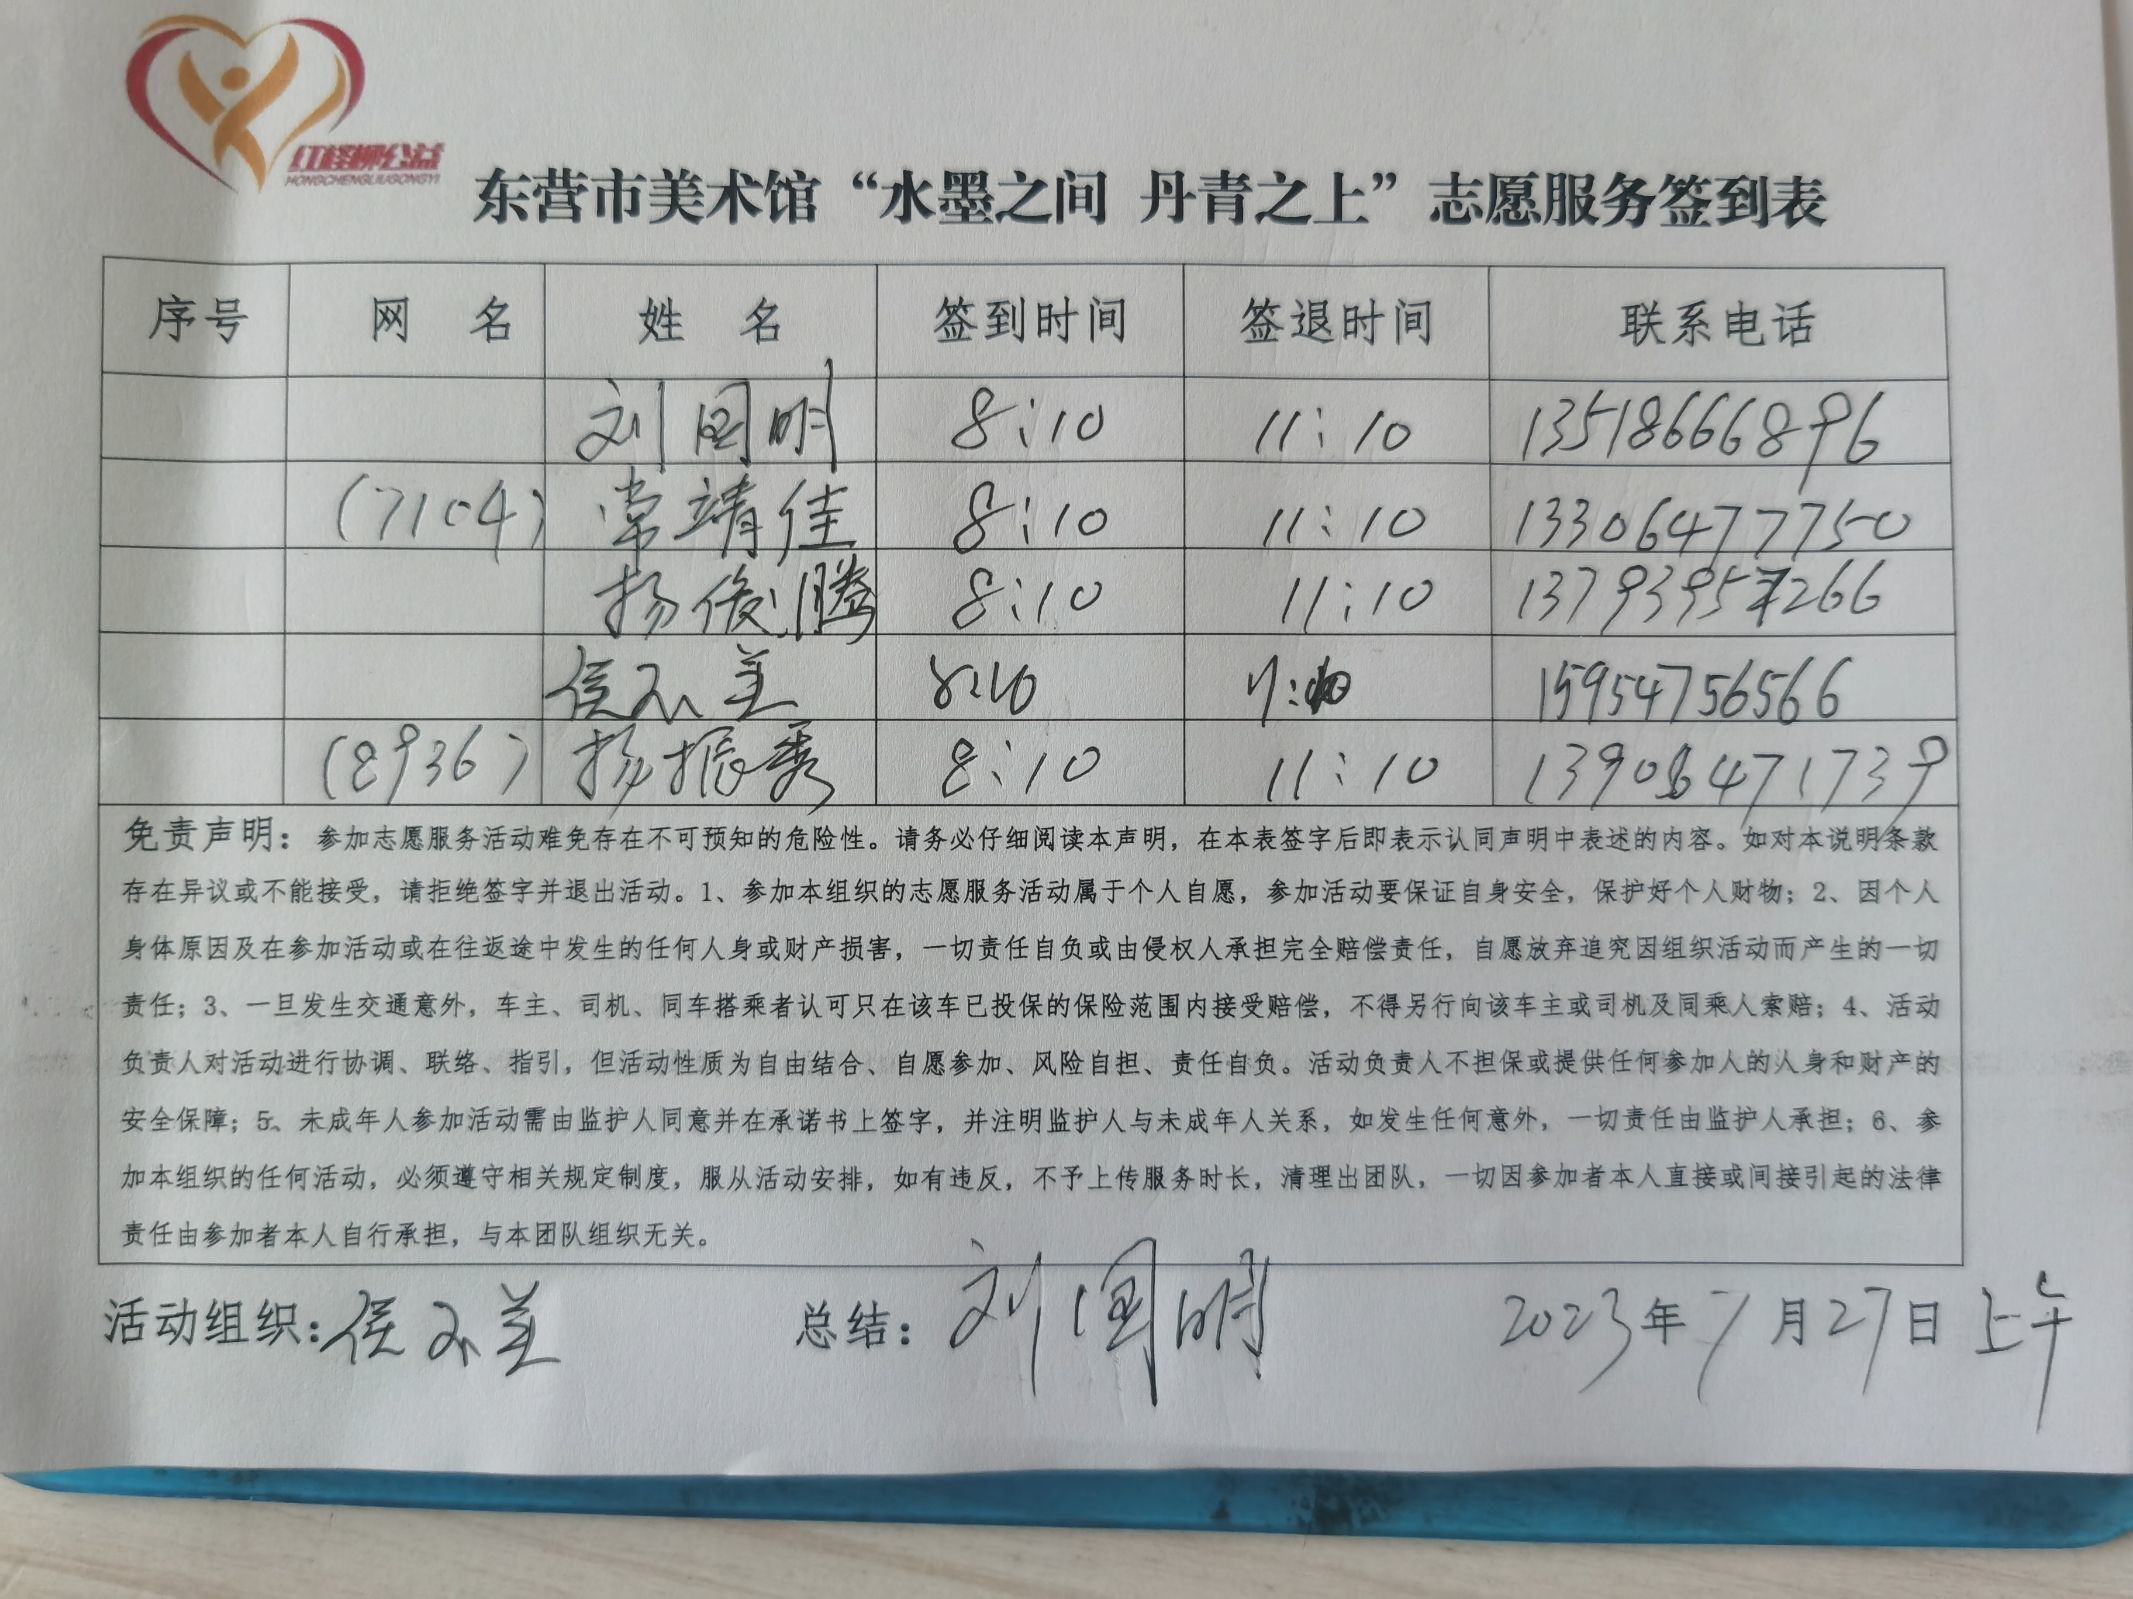 红柽柳公益
HONGCHENGLIUGONGYI
东营市美术馆“水墨之间 丹青之上”志愿服务签到表
序号 网 名 姓 名 签到时间 签退时间 联系电话
刘国明 8:10 11:10 13518666896
(7104) 常靖佳 8:10 11:10 13306477750
扬俊腾 8:10 11:10 13793957266
侯 美 8:10 11:10 15954756566
(8936) 扬振秀 8:10 11:10 13906471739
免责声明：参加志愿服务活动难免存在不可预知的危险性。请务必仔细阅读本声明，在本表签字后即表示认同声明中表述的内容。如对本说明条款
存在异议或不能接受，请拒绝签字并退出活动。1、参加本组织的志愿服务活动属于个人自愿，参加活动要保证自身安全，保护好个人财物；2、因个人
身体原因及在参加活动或在往返途中发生的任何人身或财产损害，一切责任自负或由侵权人承担完全赔偿责任，自愿放弃追究因组织活动而产生的一切
责任；3、一旦发生交通意外，车主、司机、同车搭乘者认可只在该车已投保的保险范围内接受赔偿，不得另行向该车主或司机及同乘人索赔；4、活动
负责人对活动进行协调、联络、指引，但活动性质为自由结合、自愿参加、风险自担、责任自负。活动负责人不担保或提供任何参加人的人身和财产的
安全保障；5、未成年人参加活动需由监护人同意并在承诺书上签字，并注明监护人与未成年人关系，如发生任何意外，一切责任由监护人承担；6、参
加本组织的任何活动，必须遵守相关规定制度，服从活动安排，如有违反，不予上传服务时长，清理出团队，一切因参加者本人直接或间接引起的法律
责任由参加者本人自行承担，与本团队组织无关。
活动组织：侯 美 总结：刘国明 2023年7月27日上午